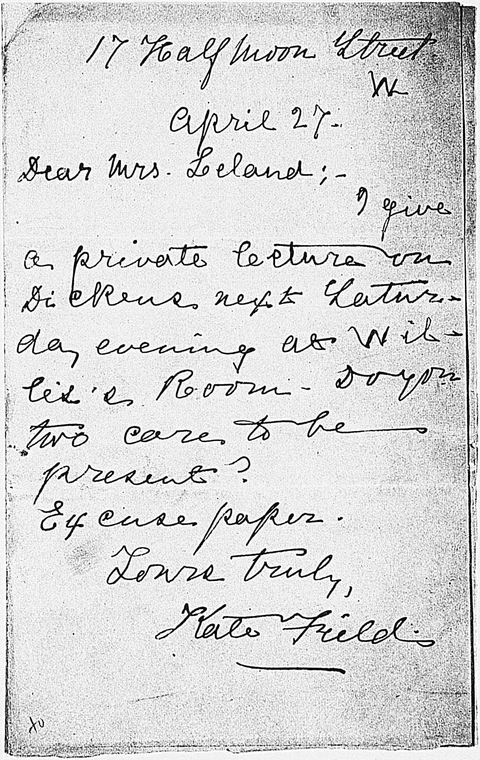 17 Half Moon Street
W
April 27.
Dear Mrs. Leland;-
I give
a private lecture on
Dickens next Satur-
day evening at Wil-
lis's Room - Do you
two care to be
present?
Excuse paper.
Yours truly,
Kate Field.